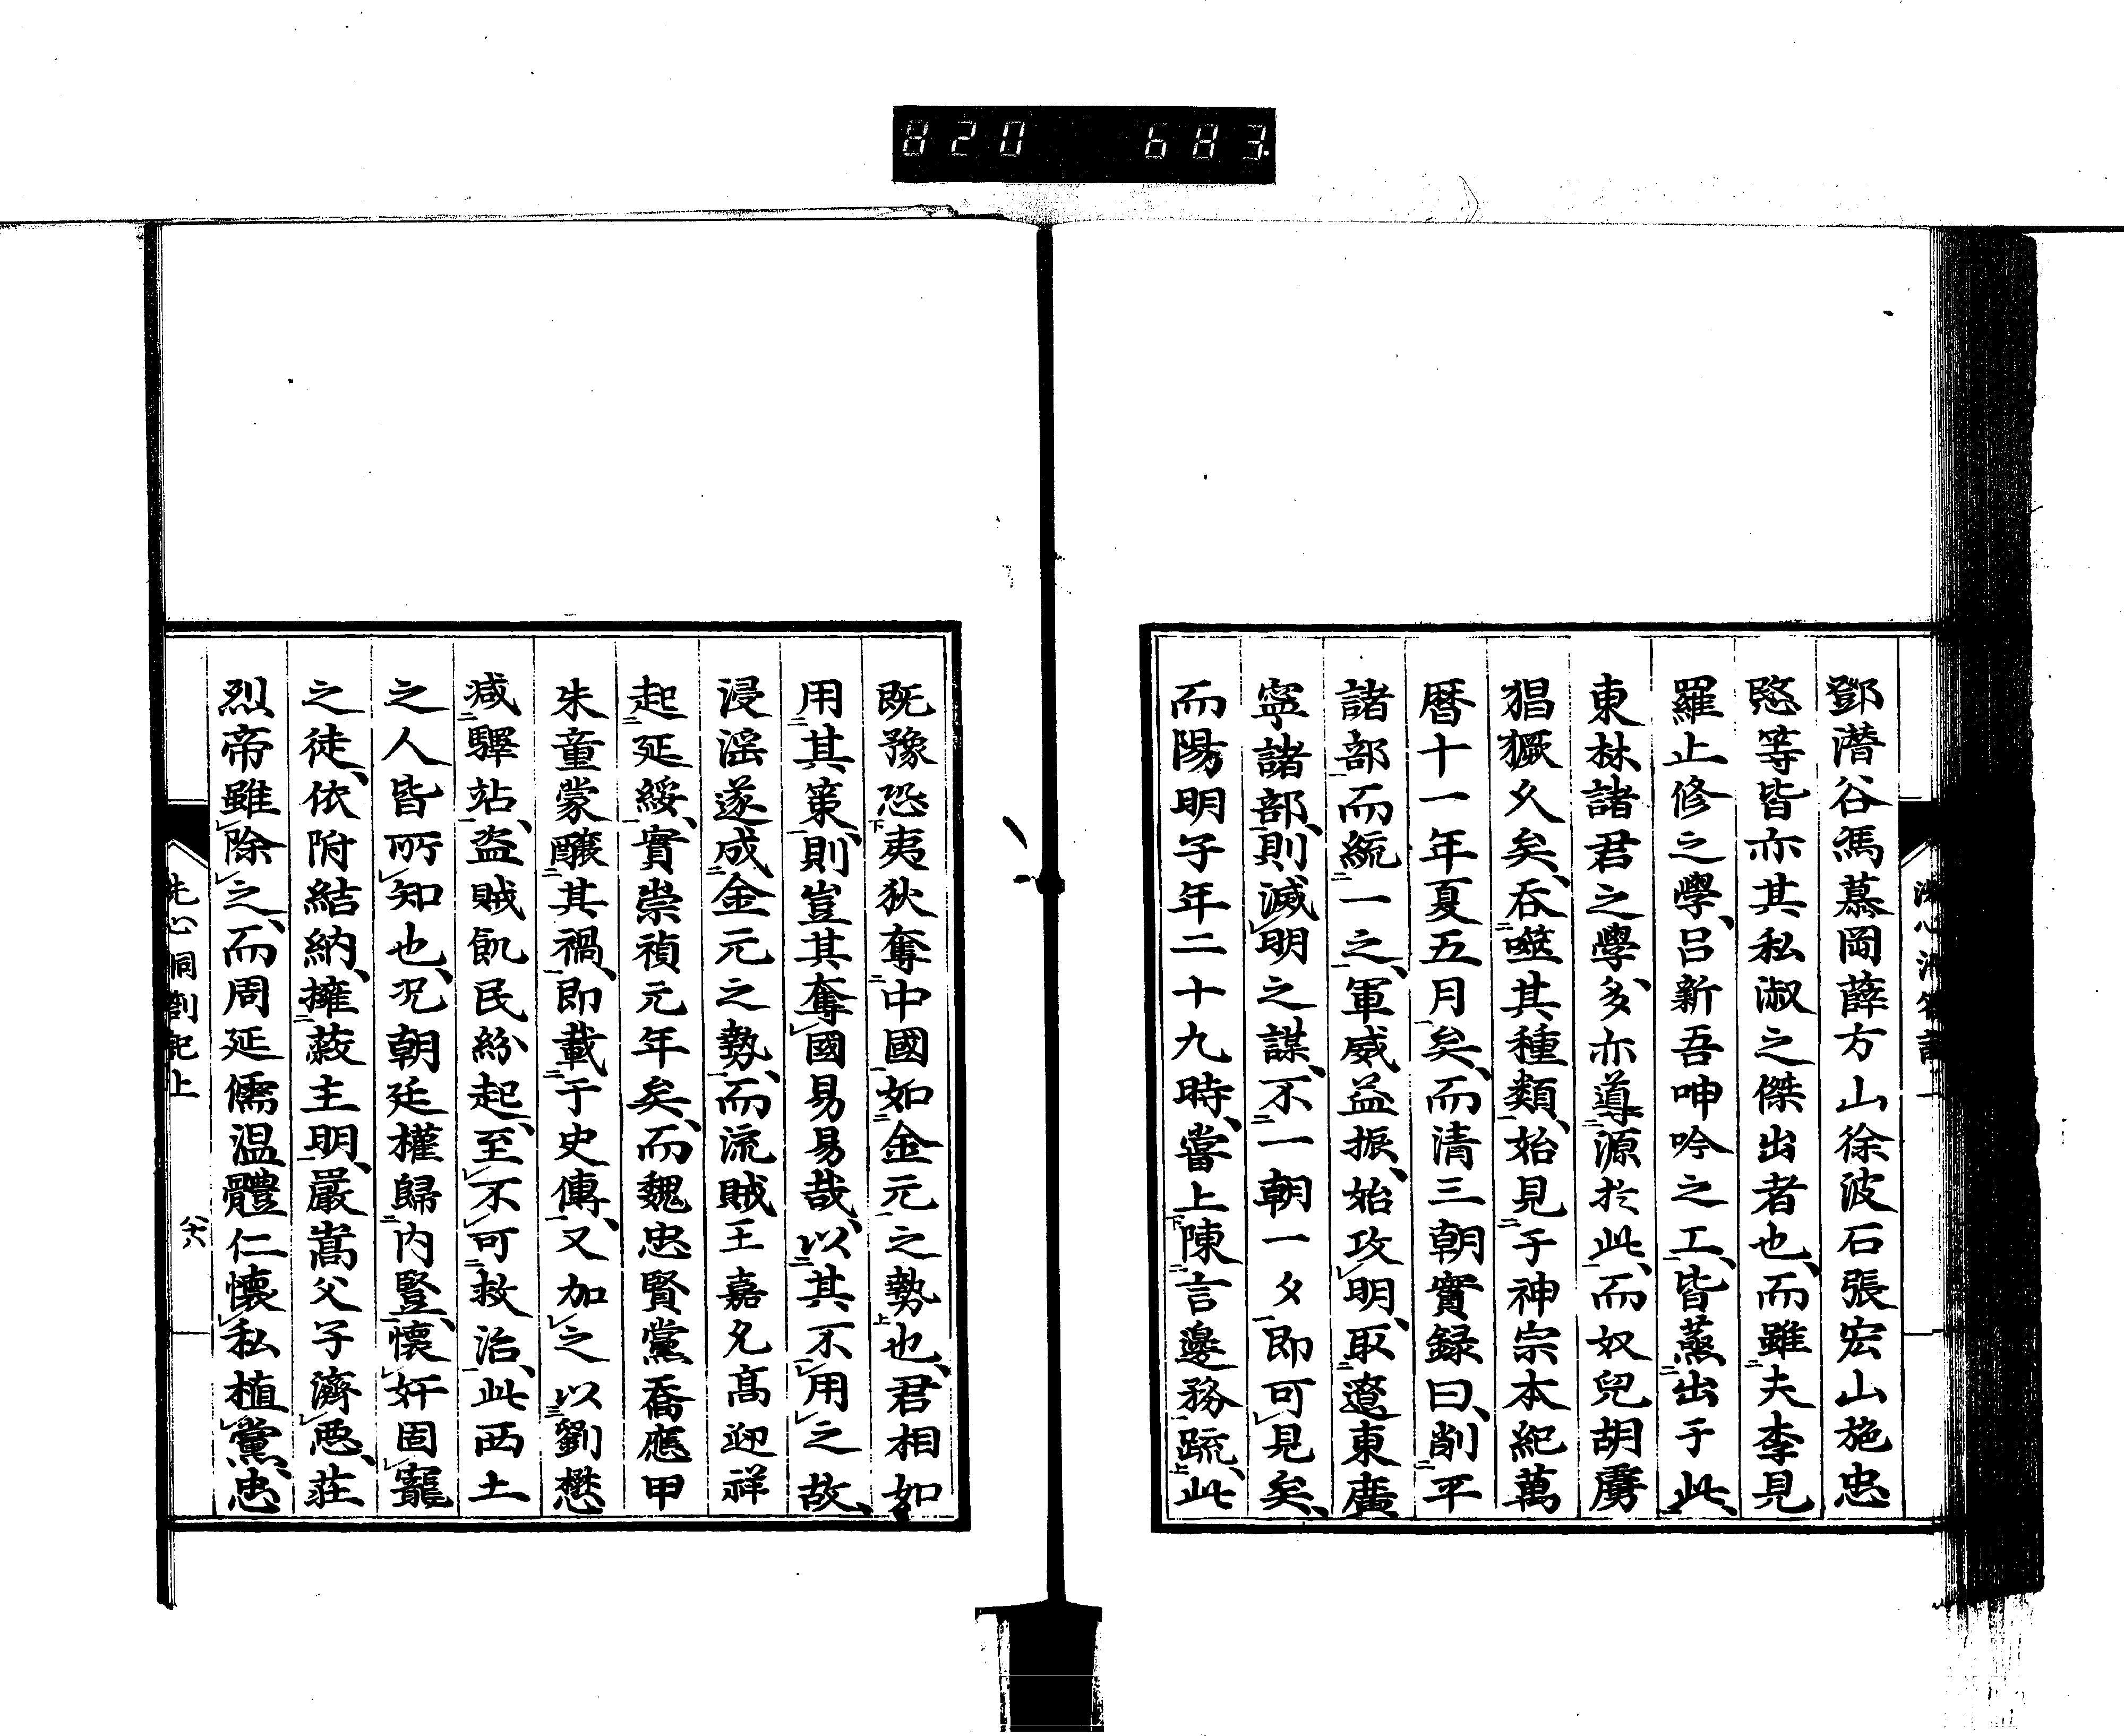 820 683
鄧潛谷馮慕岡薛方山徐波石張宏山施忠
愍等皆亦其私淑之傑出者也、而雖夫李見
羅止修之學、呂新吾呻吟之工、皆蒸出于此、
東林諸君之學、多亦導源於此、而奴兒胡虜
猖獗久矣、吞噬其種類、始見于神宗本紀萬
曆十一年夏五月矣、而清三朝實録曰、削平
諸部而統一之、軍威益振、始攻明、取遼東廣
寧諸部、則滅明之謀、不一朝一夕即可見矣、
而陽明子年二十九時、當上陳言邊務疏、此
既豫恐夷狄奪中國如金元之勢也、君相如
用其策、則豈其奪國易易哉、以其不用之故、
浸淫遂成金元之勢、而流賊王嘉允高迎祥
起延綏、實崇禎元年矣、而魏忠賢黨喬應甲
朱童蒙釀其禍、即載于史傳、又加之以劉懋
減驛站、盜賊飢民紛起、至不可救治、此西土
之人皆所知也、况朝廷權歸內豎、懷奸固寵
之徒、依附結納、擁蔽主明、嚴嵩父子濟惡、莊
烈帝雖除之、而周延儒温體仁懷私植黨、忠
洗心洞劄記上
六十八